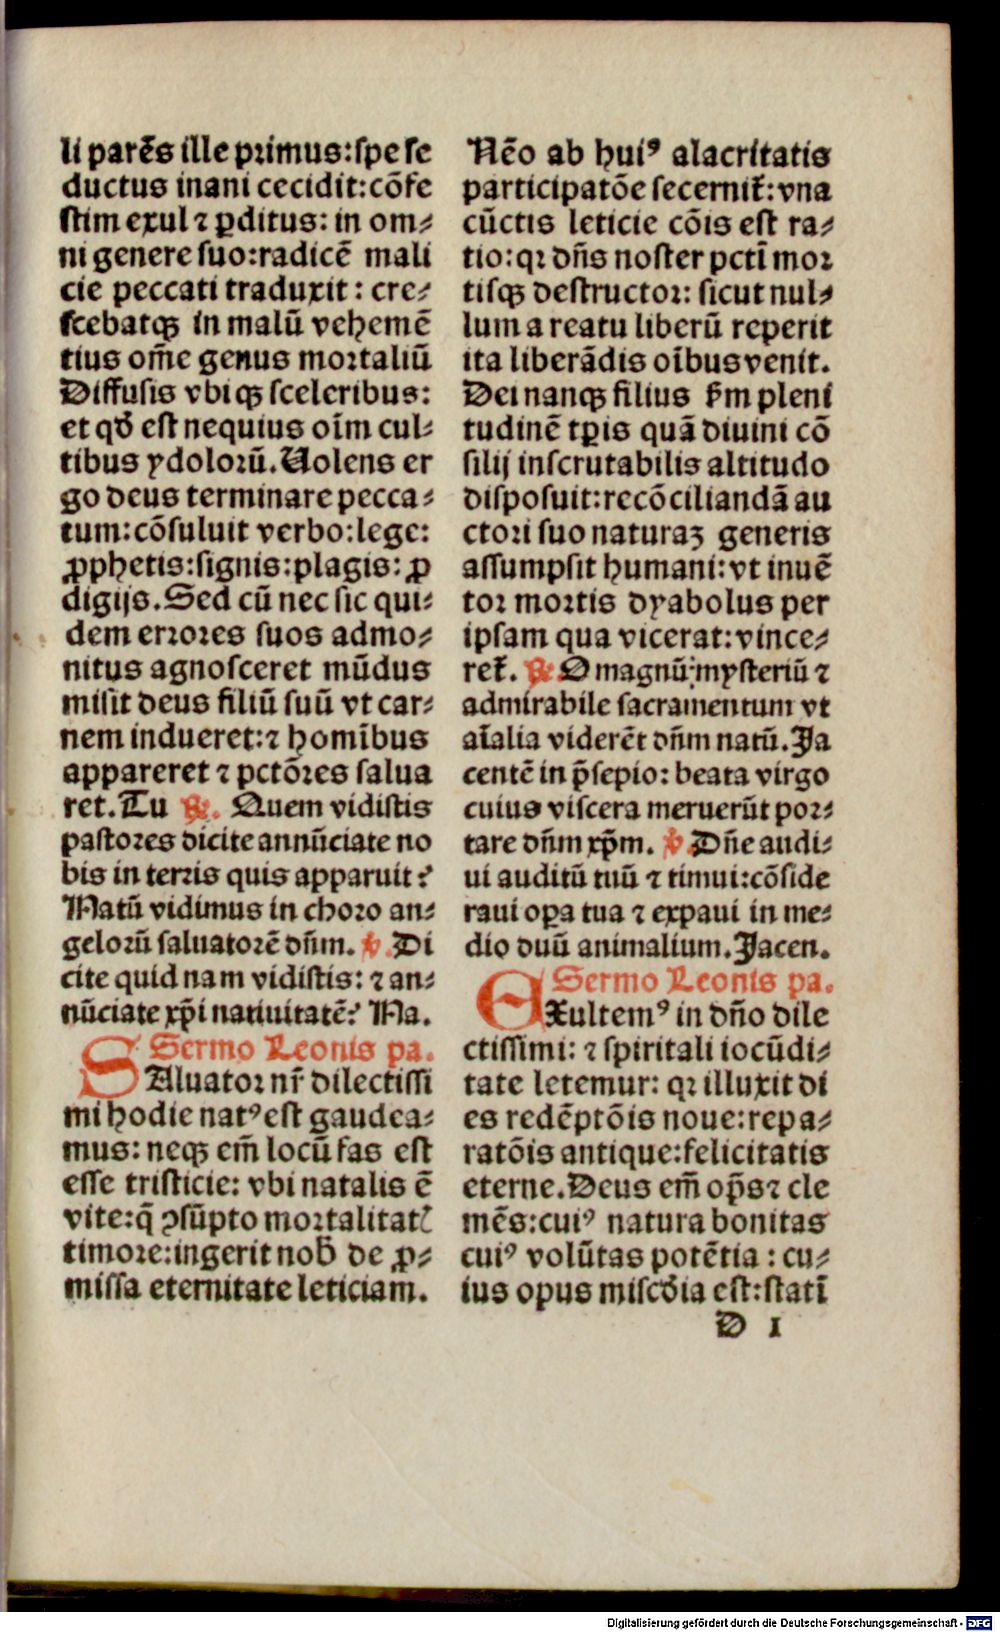 li parēs ille primus: spe se
ductus inani cecidit: cōfe
stim exul ⁊ ꝑditus: in om⸗
ni genere suo: radicē mali
cie peccati traduxit: cre⸗
scebatqꝫ in malū vehemē
tius om̄e genus mortaliū
Diffusis vbiqꝫ sceleribus:
et qđ est nequius oīm cul⸗
tibus ydolorū. Uolens er
go deus terminare pecca⸗
tum: cōsuluit verbo: lege:
ꝓphetis: signis: plagis: ꝓ
digijs. Sed cū nec sic qui⸗
dem errores suos admo⸗
nitus agnosceret mūdus
misit deus filiū suū vt car⸗
nem indueret: ⁊ homībus
appareret ⁊ pctōres salua
ret. Tu ℟. Quem vidistis
pastores dicite annūciate no
bis in terris quis apparuit?
Natū vidimus in choro an⸗
gelorū saluatorē dn̄m. ℣. Di
cite quid nam vidistis: ⁊ an⸗
nūciate xp̄i natiuitatē? Na.
Sermo Leonis pa.
SAluator nr̄ dilectissi
mi hodie natꝰ est gaudea⸗
mus: neqꝫ em̄ locū fas est
esse tristicie: vbi natalis ē
vite: q̄ ꝯsūpto mortalitatꝭ
timore: ingerit nob̄ de ꝓ⸗
missa eternitate leticiam.
Nēo ab huiꝰ alacritatis
participatōe secernit̄: vna
cūctis leticie cōis est ra⸗
tio: qꝛ dn̄s noster pctī mor
tisqꝫ destructor: sicut nul⸗
lum a reatu liberū reperit
ita liberādis oībus venit.
Dei nanqꝫ filius ẜm pleni
tudinē tꝑis quā diuini cō
silij inscrutabilis altitudo
disposuit: recōciliandā au
ctori suo naturaꝫ generis
assumpsit humani: vt inuē
tor mortis dyabolus per
ipsam qua vicerat: vince⸗
ret̄. ℟. O magnū: mysteriū ⁊
admirabile sacramentum vt
aīalia viderēt dn̄m natū. Ja
centē in p̄sepio: beata virgo
cuius viscera meruerūt por⸗
tare dn̄m xp̄m. ℣. Dn̄e audi⸗
ui auditū tuū ⁊ timui: cōside
raui oꝑa tua ⁊ expaui in me⸗
dio duū animalium. Jacen.
Sermo Leonis pa.
EXultemꝰ in dn̄o dile
ctissimi: ⁊ spiritali iocūdi⸗
tate letemur: qꝛ illuxit di
es redēptōis noue: repa⸗
ratōis antique: felicitatis
eterne. Deus em̄ op̄s ⁊ cle
mēs: cuiꝰ natura bonitas
cuiꝰ volūtas potētia: cu⸗
ius opus miscđia est: statī
D 1
Digitalisierung gefördert durch die Deutsche Forschungsgemeinschaft - DFG